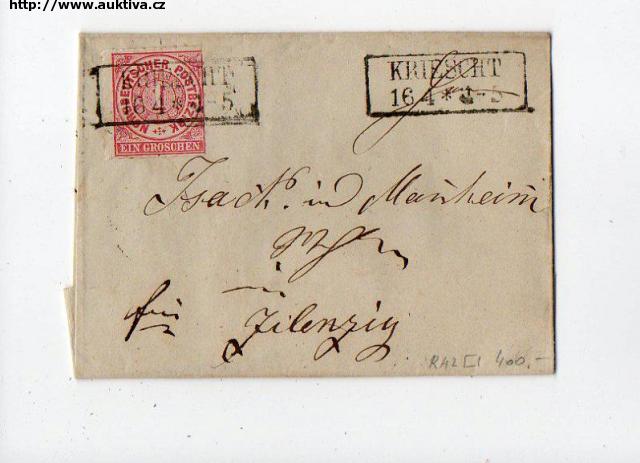 http://www.auktiva.cz
NORDDEUTSCHER POSTBEZIRK
1
EIN GROSCHEN
KRIESCHT
16 4 * 2-5
KRIESCHT
16 4 * 4-5
Isack. in Manheim
in
frei Zilenzig
400,-